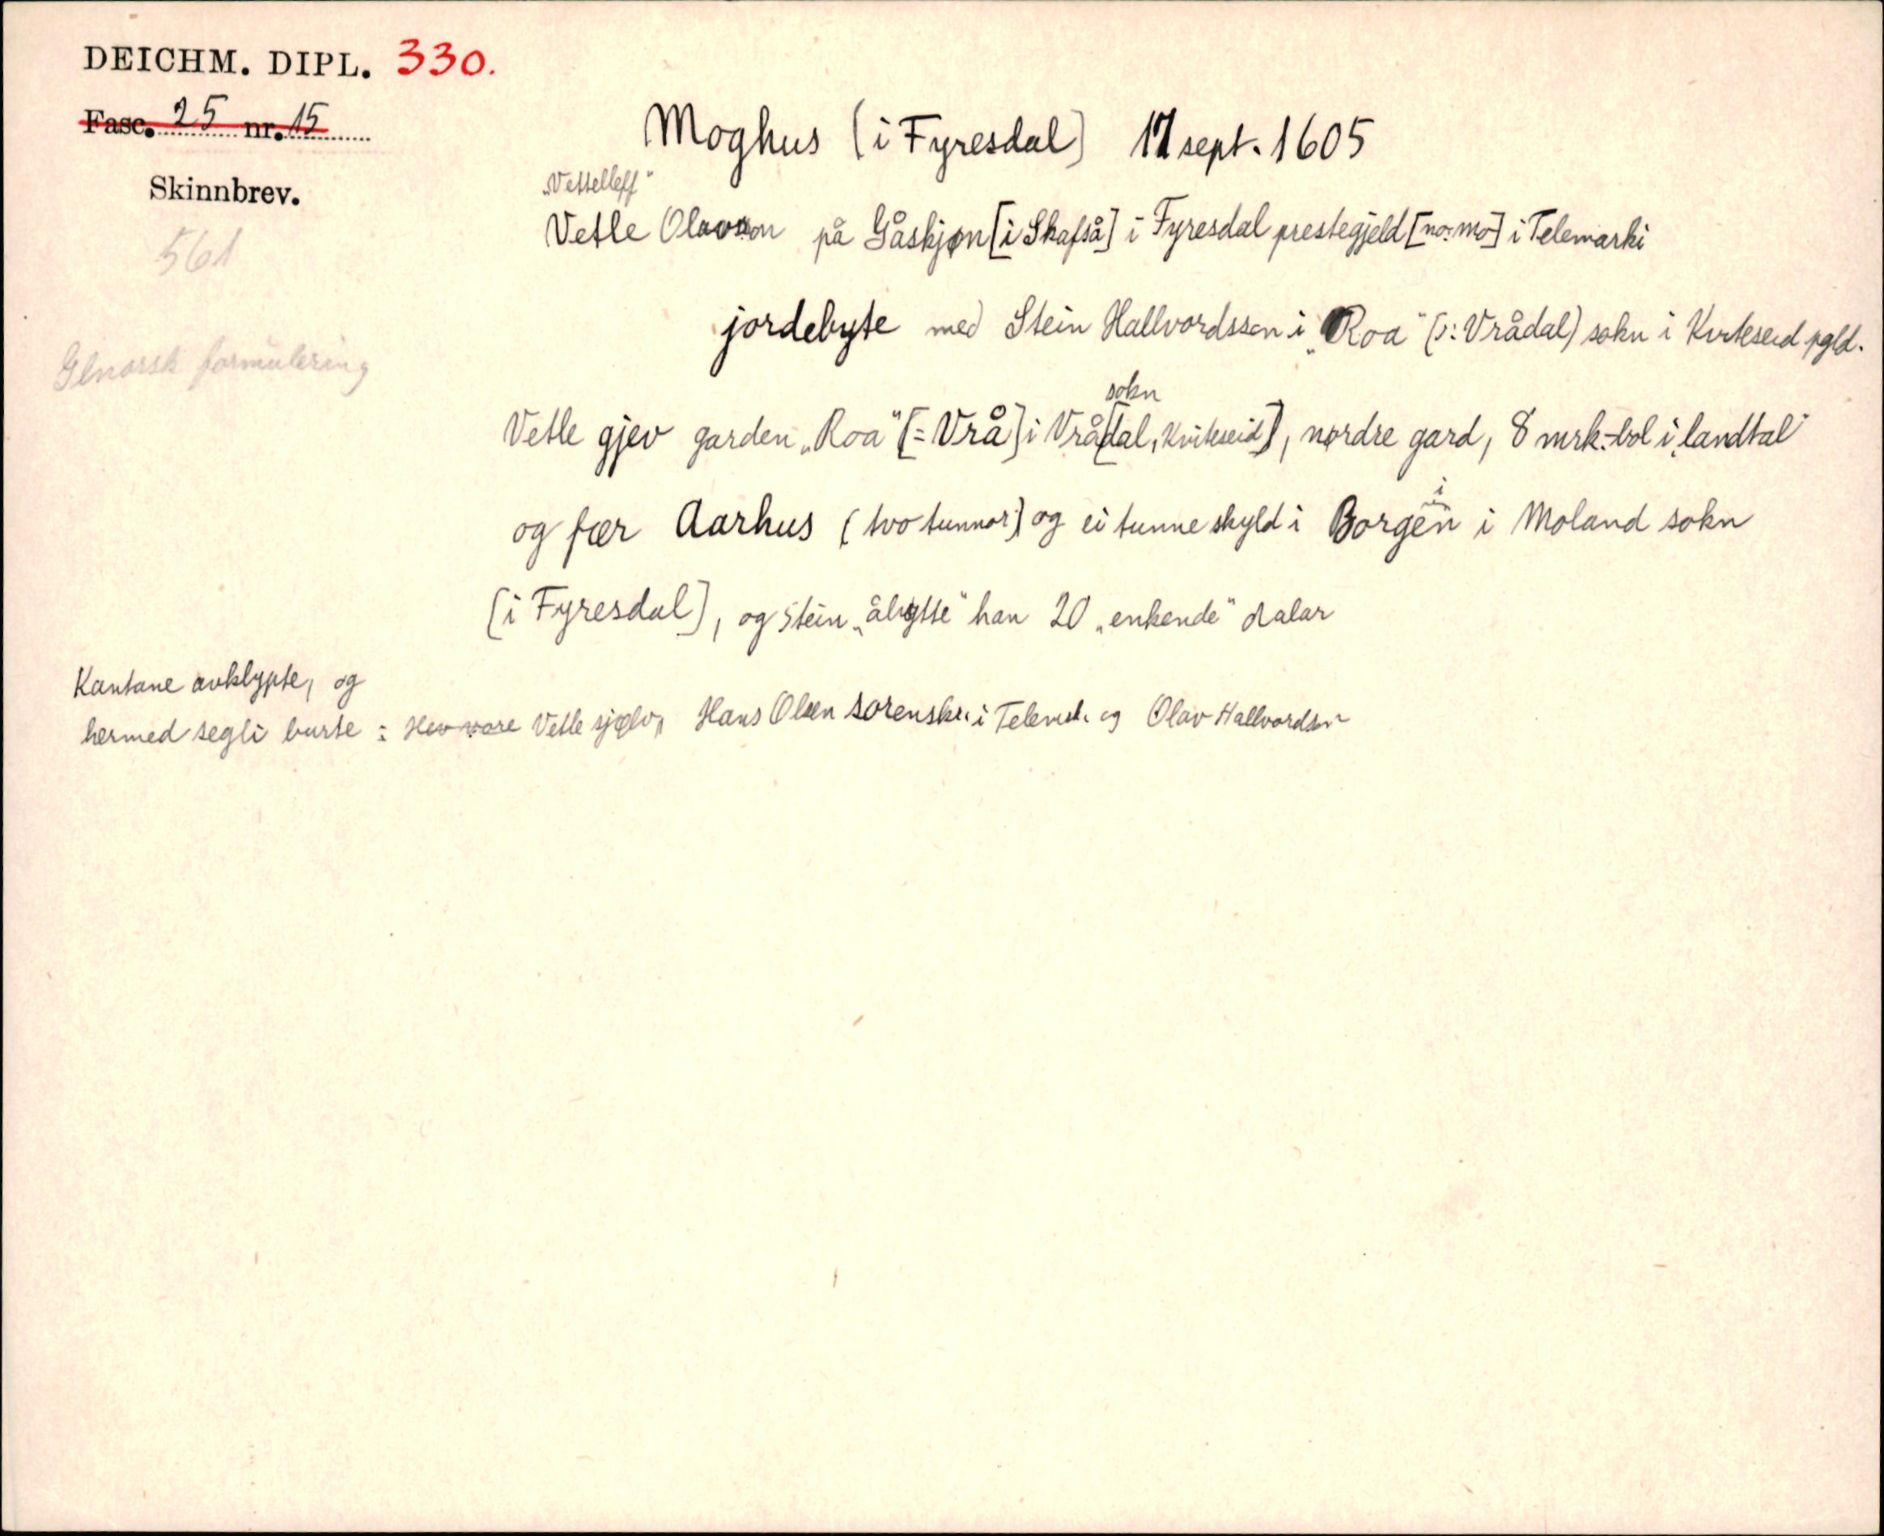 DEICHM. DIPL. 330.
Fasc. 25 nr. 15
Moghus (i Fyresdal) 17 sept. 1605
Skinnbrev.
„Vettelleff"
Vetle Olavson på Gåskjøn [i Skafså] i Fyresdal prestegjeld [no: Mo] i Telemarki
561
jordebyte med Stein Hallvordsson i „Roa" (ɔ: Vrådal) sokn i Kviteseid pgld.
Glnorsk formulering
sokn
Vetle gjev garden „Roa" [= Vrå] i Vrå[dal, Kviteseid], nordre gard, 8 mrk.-bol i „landtal"
og fær Aarhus (two tunnor) og ei tunne skyld i Borgen i Moland sokn
i
[i Fyresdal], og Stein „åbytte" han 20 „enkende" dalar
Kantane avklypte, og
hermed segli burte : Hev vore Vetle sjølv, Hans Olsen sorenskr. i Telemk. og Olav Hallvordson